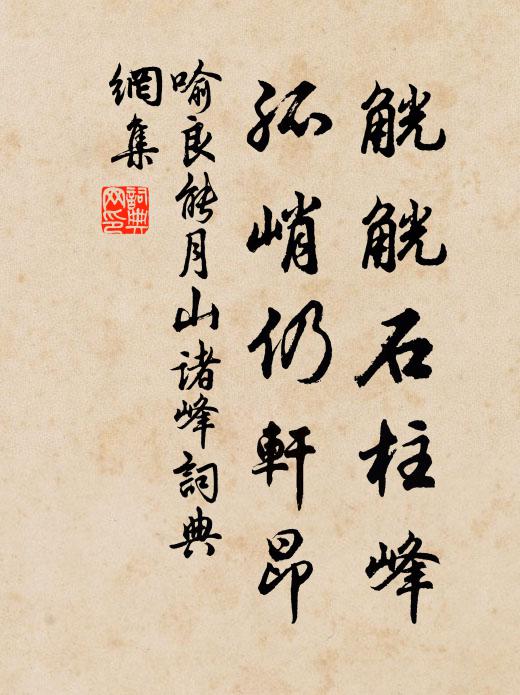 觥觥石柱峰
孤峭仍軒昂
喻良能月山诸峰詞典
網集
詞典
网印